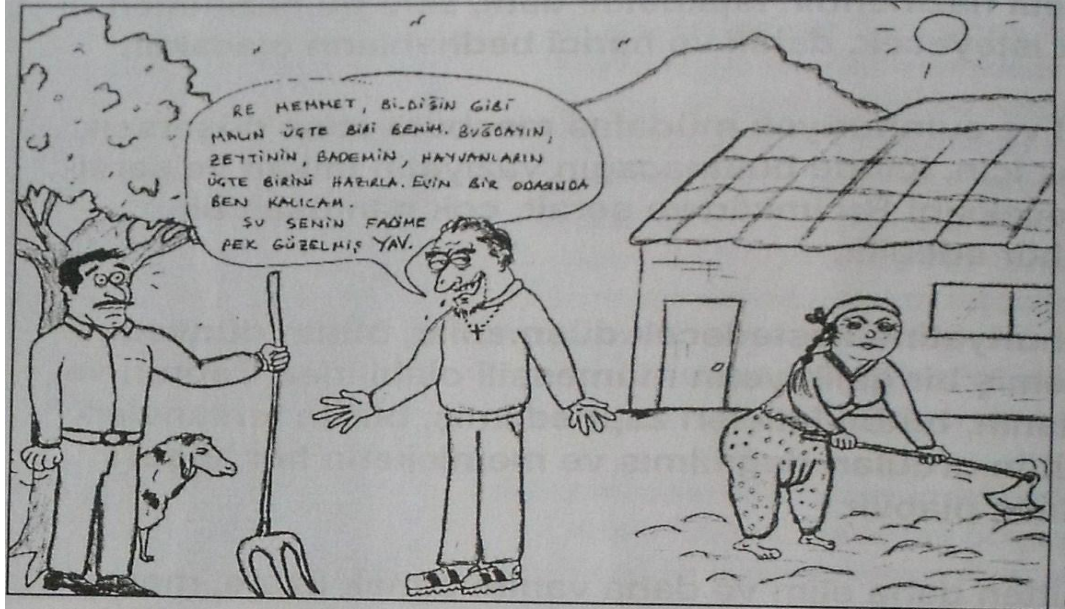 RE MEMMET, BİLDİĞİN GİBİ
MALIN ÜGTE BİRİ BENİM. BUĞDAYIN,
ZEYTİNİN, BADEMİN, HAYVANLARIN
ÜGTE BİRİNİ HAZIRLA. EVİN BİR ODASINDA
BEN KALICAM.
ŞU SENİN FADİME
PEK GÜZELMİŞ YAV.